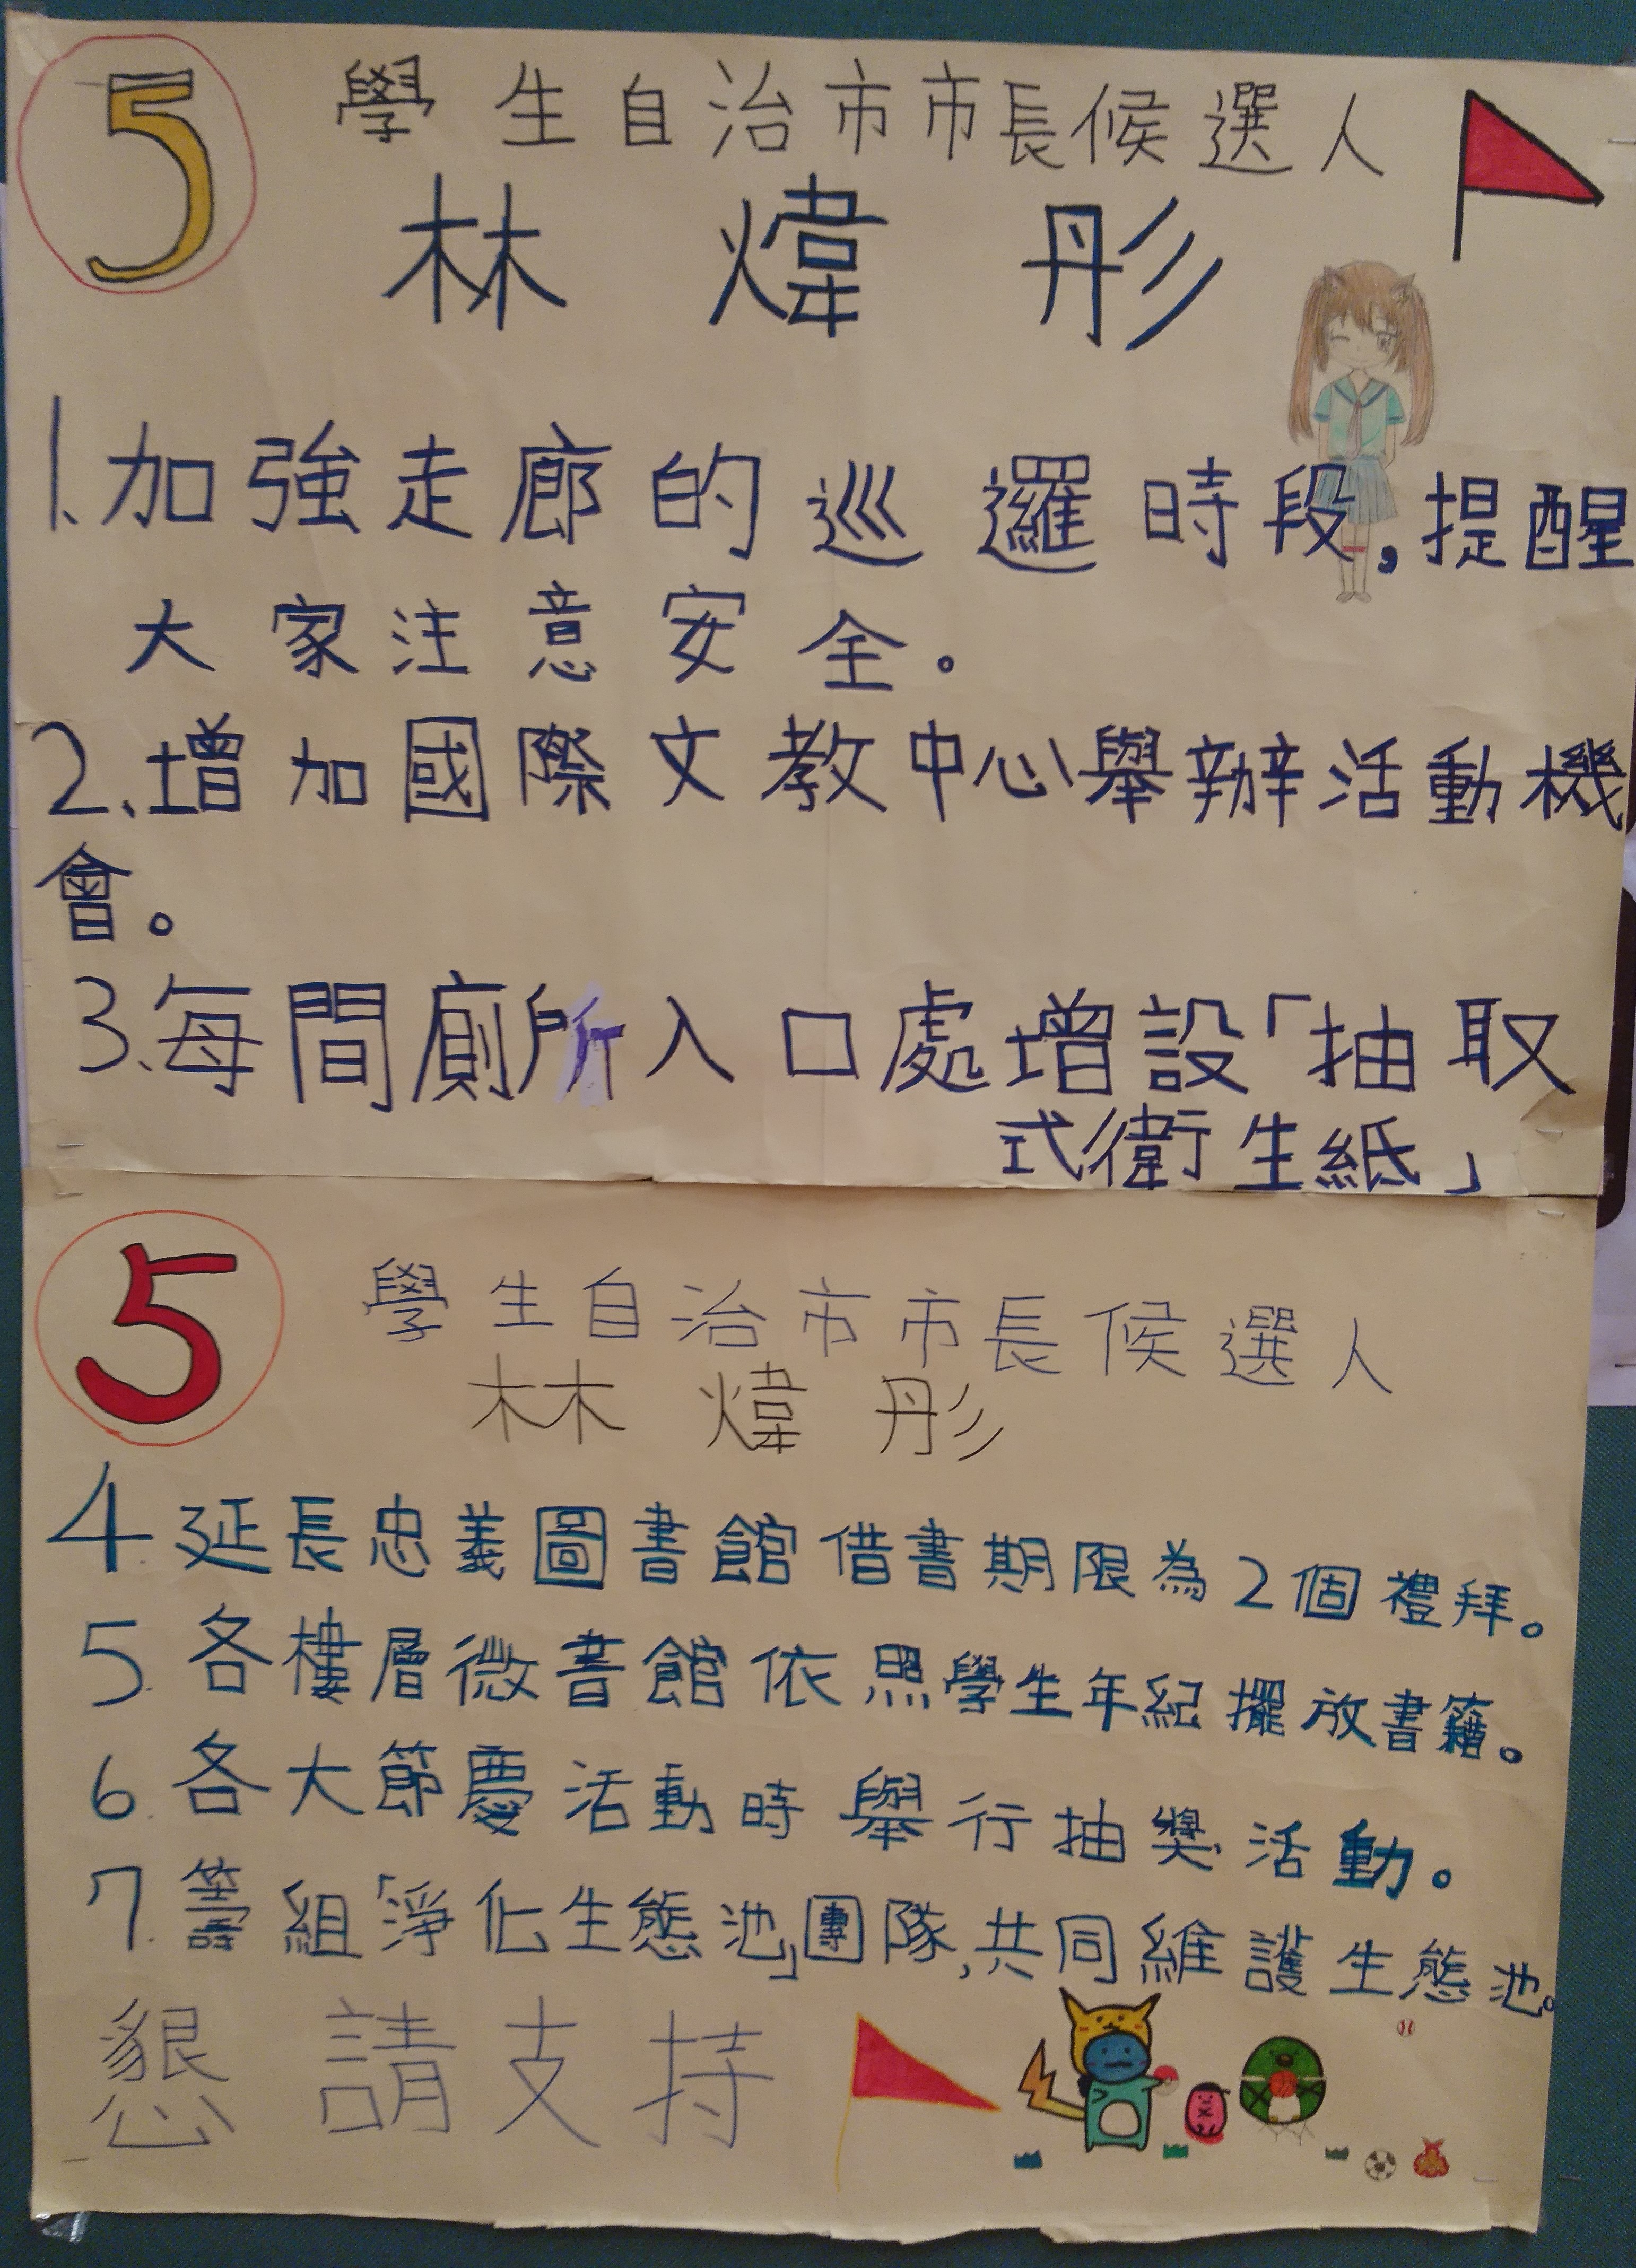 5
學生自治市市長候選人
林煒彤
1.加強走廊的巡邏時段,提醒
大家注意安全。
2、增加國際文教中心舉辦活動機
會。
3、每間廁所入口處增設「抽取
式衛生紙」
5
學生自治市市長候選人
林煒彤
4.延長忠義圖書館借書期限為2個禮拜。
5.各樓層微書館依照學生年紀擺放書籍。
6.各大節慶活動時舉行抽獎活動。
7.籌組「淨化生態池」團隊,共同維護生態池。
懇請支持